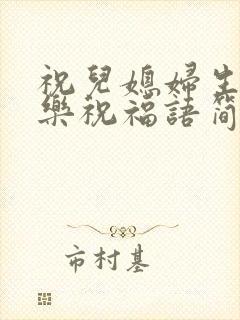 祝兒媳婦生
樂祝福語簡
市村基